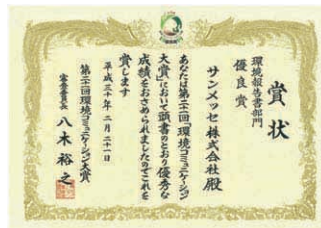 賞状
環境報告書部門
優良賞
サンメッセ株式会社殿
あなたは第二十一回「環境コミュニケーション
大賞」において頭書のとおり優秀な
成績をおさめられましたのでこれを
賞します
平成三十年二月二十一日
第二十一回環境コミュニケーション大賞
審査委員長 八木裕之